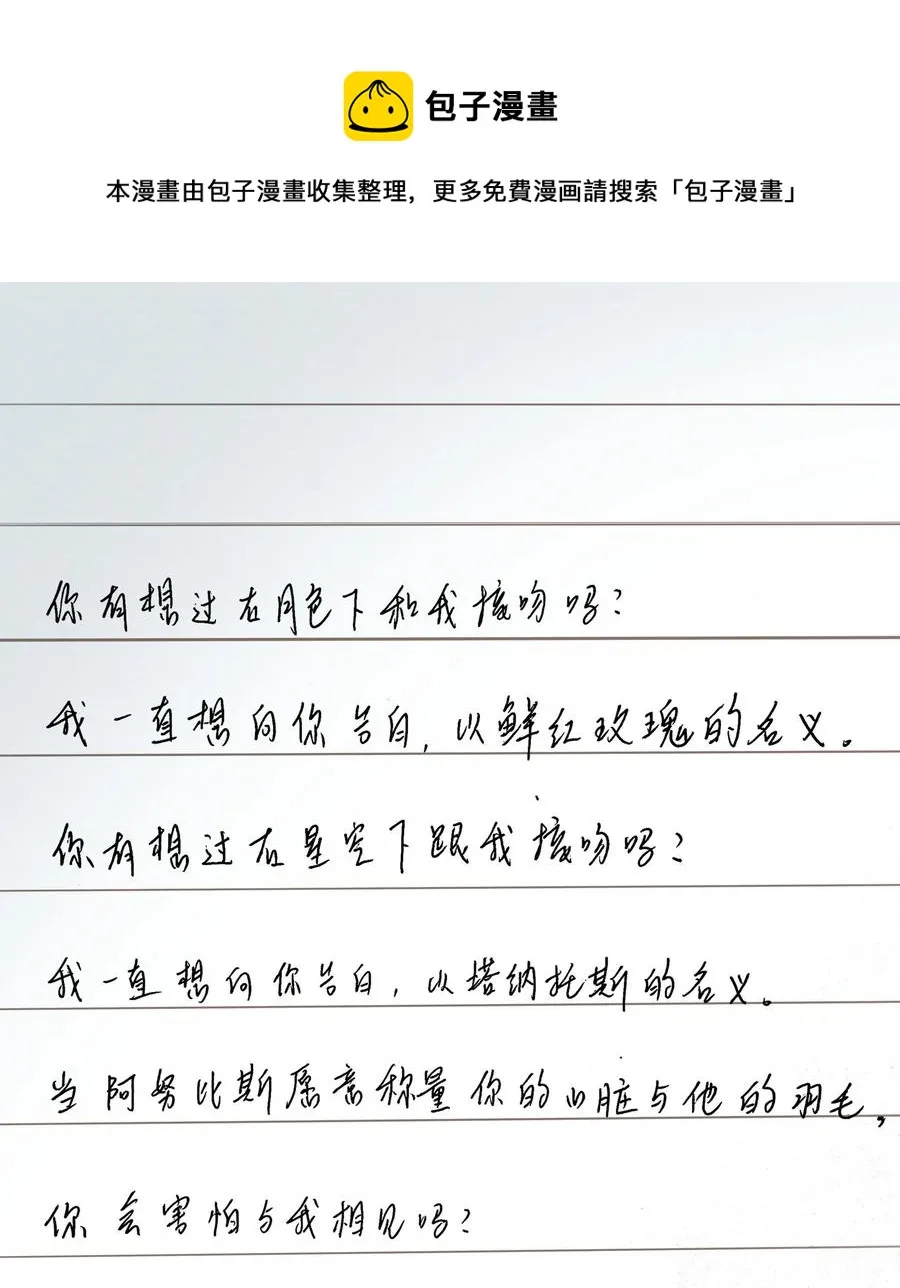 包子漫畫
本漫畫由包子漫畫收集整理，更多免費漫画請搜索「包子漫畫」
你有想过在月色下和我接吻吗？
我一直想向你告白，以鲜红玫瑰的名义。
你有想过在星空下跟我接吻吗？
我一直想向你告白，以塔纳托斯的名义。
当阿努比斯愿意称量你的心脏与他的羽毛，
你会害怕与我相见吗？